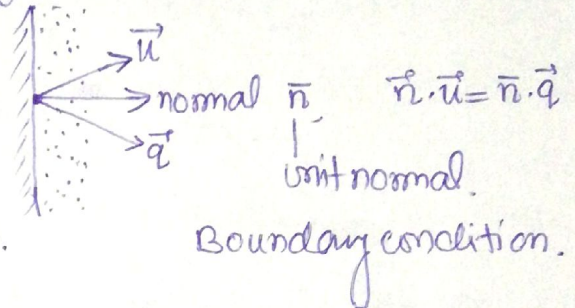 u⃗
normal n̄ n⃗.u⃗ = n̄.q⃗
q⃗
unit normal.
Boundary condition.